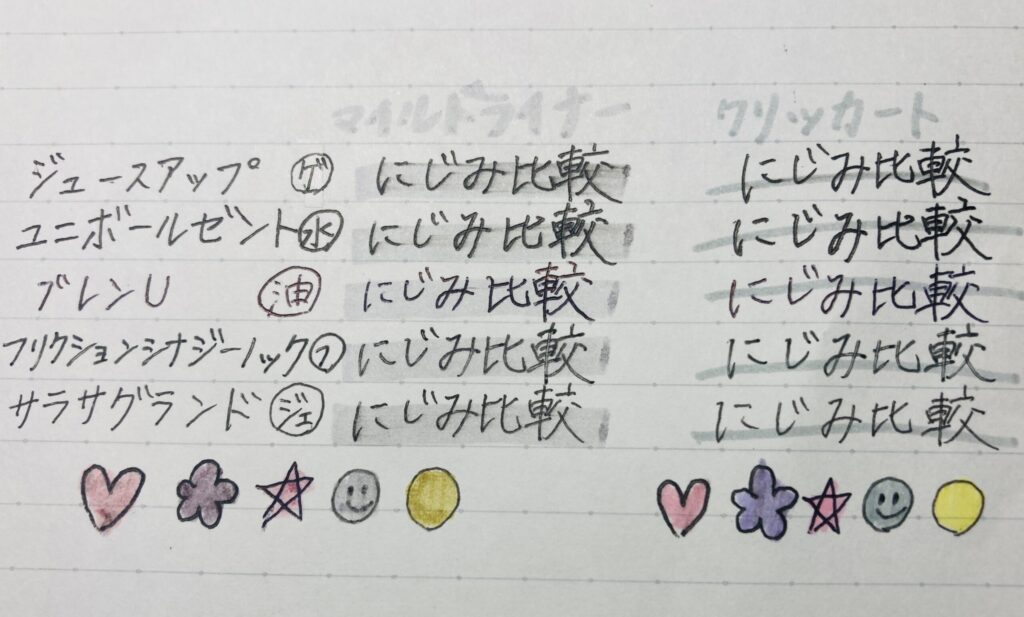 マイルドライナー クリッカート
ジュースアップ ゲ にじみ比較 にじみ比較
ユニボールゼント 水 にじみ比較 にじみ比較
ブレンU 油 にじみ比較 にじみ比較
フリクションシナジーノック フ にじみ比較 にじみ比較
サラサグランド ジェ にじみ比較 にじみ比較